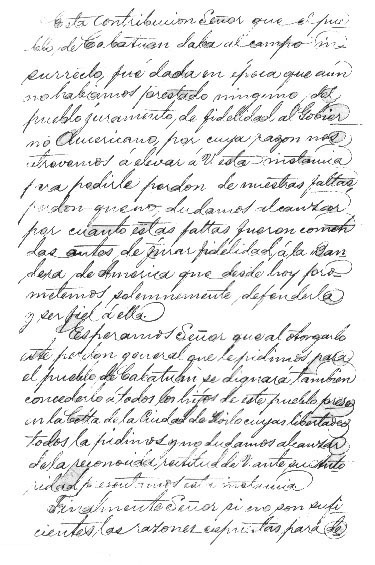 Esta contribucion Señor que el pue
blo de Cabatuan daba al campo in
surrecto, fué dada en época que aún
no habiamos prestado ninguno del
pueblo juramento, de fidelidad al Gobier
no Americano, por cuya razon nos
atrevemos a elevar á V. esta instancia
para pedirle perdon de nuestras faltas
perdon que no dudamos alcanzar
por cuanto estas faltas fueron cometi
das antes de jurar fidelidad á la Ban
dera de América que desde hoy pro-
metemos solemnemente defenderla
y ser fiel á ella
Esperamos Señor que al otorgarlo
este perdon general que le pedimos para
el pueblo de Cabatuan se dignará tambien
concederlo á todos los hijos de este pueblo presos
en la Cotta de la Ciudad de Iloilo cuyas libertades
todos la pedimos y no dudamos alcanzar
de la reconocida rectitud de V. ante cuya Auto
ridad presentamos esta instancia
Finalmente Señor si no son sufi
cientes las razones espuestas para